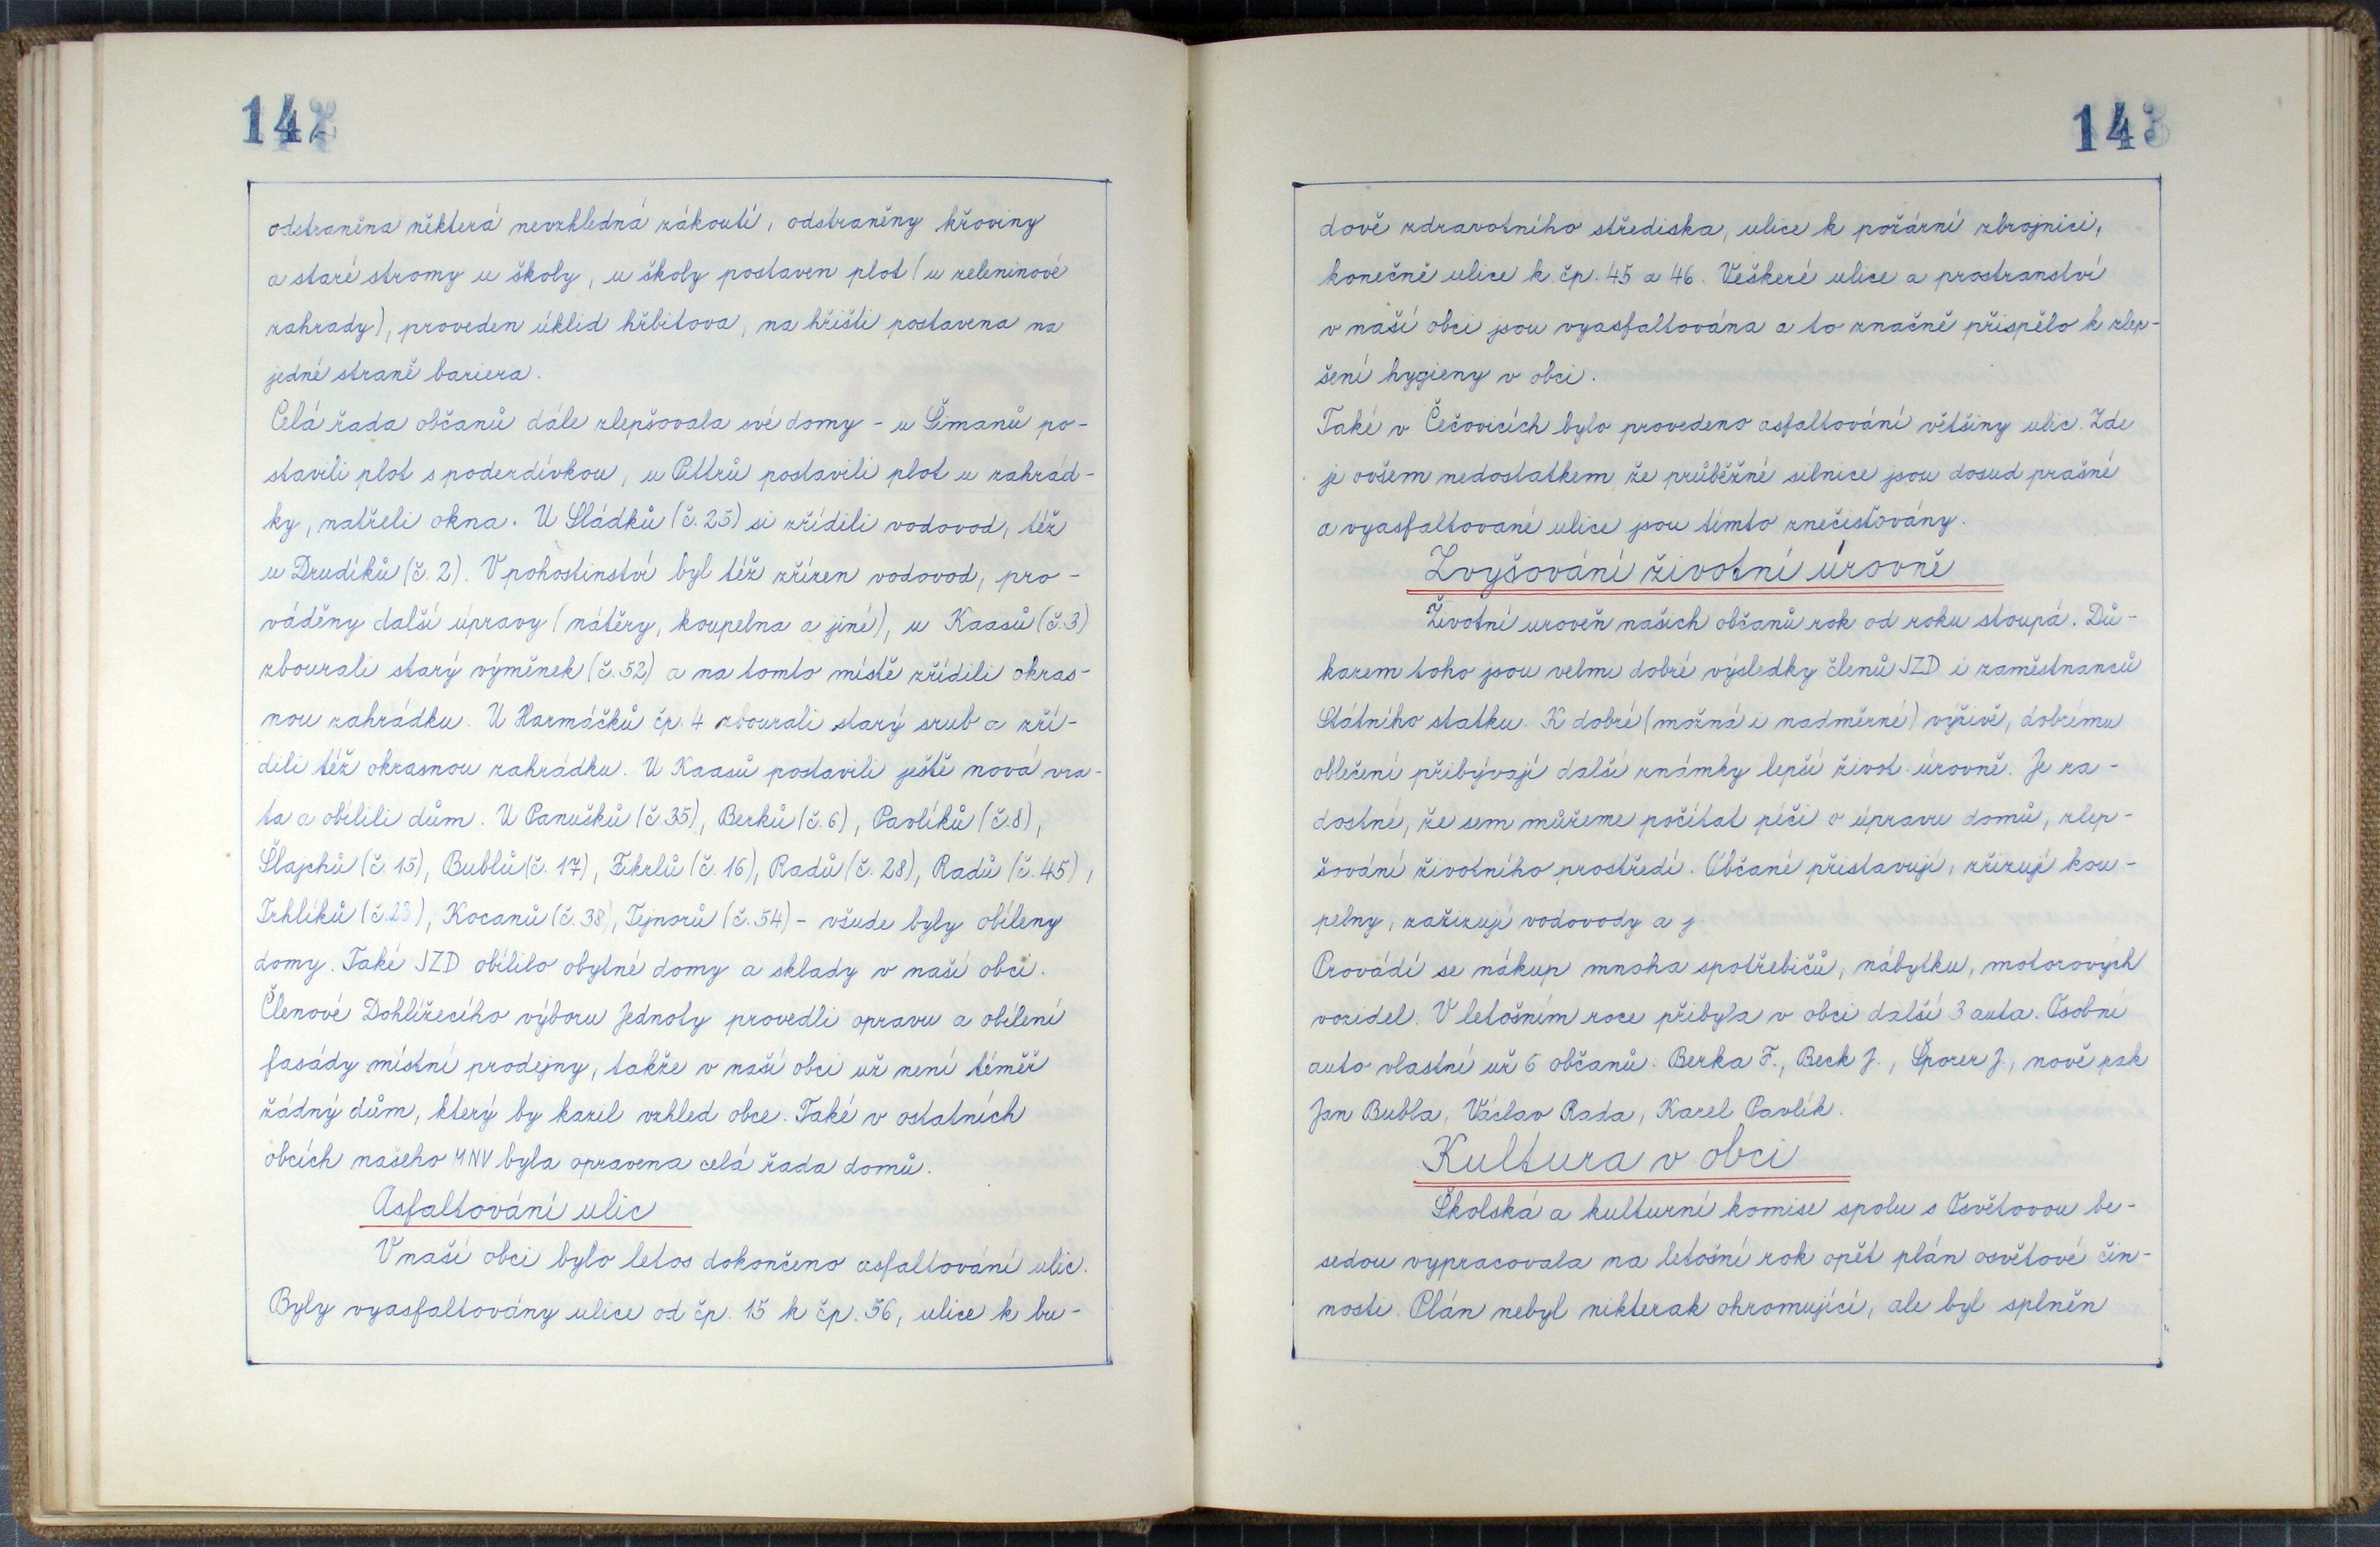 142
odstraněna některá nevzhledná zákoutí, odstraněny křoviny
a staré stromy u školy, u školy postaven plot (u zeleninové
zahrady), proveden úklid hřbitova, na hřišti postavena na
jedné straně bariera.
Celá řada občanů dále zlepšovala své domy - u Šimanů po-
stavili plot s podezdívkou, u Pittrů postavili plot u zahrád-
ky, natřeli okna. U Sládků (č. 25) si zřídili vodovod, též
u Drudíků (č. 2). V pohostinství byl též zřízen vodovod, pro-
váděny další úpravy (nátěry, koupelna a jiné), u Kaasů (č. 3)
zbourali starý výměnek (č. 52) a na tomto místě zřídili okras-
nou zahrádku. U Harmáčků čp. 4 zbourali starý srub a zří-
dili též okrasnou zahrádku. U Kaasů postavili ještě nová vra-
ta a obílili dům. U Panušků (č 35), Berků (č. 6), Pavlíků (č. 8),
Šlajchů (č. 15), Bublů (č. 17), Fikrlů (č. 16), Radů (č. 28), Radů (č. 45),
Trhlíků (č. 23), Kocanů (č. 38), Tejnorů (č. 54) - všude byly obíleny
domy. Také JZD obílilo obytné domy a sklady v naší obci.
Členové Dohlížecího výboru Jednoty provedli opravu a obílení
fasády místní prodejny, takže v naší obci už není téměř
žádný dům, který by kazil vzhled obce. Také v ostatních
obcích našeho MNV byla opravena celá řada domů.
Asfaltování ulic
V naší obci bylo letos dokončeno asfaltování ulic.
Byly vyasfaltovány ulice od čp. 15 k čp. 56, ulice k bu-
143
dově zdravotního střediska, ulice k požární zbrojnici,
konečně ulice k čp. 45 a 46. Veškeré ulice a prostranství
v naší obci jsou vyasfaltována a to značně přispělo k zlep-
šení hygieny v obci.
Také v Čečovicích bylo provedeno asfaltování většiny ulic. Zde
je ovšem nedostatkem že průběžné silnice jsou dosud prašné
a vyasfaltované ulice jsou tímto znečisťovány.
Zvyšování životní úrovně
Životní uroveň našich občanů rok od roku stoupá. Dů-
kazem toho jsou velmi dobré výsledky členů JZD i zaměstnanců
Státního statku. K dobré (možná i nadměrné) výživě, dobrému
oblečení přibývají další známky lepší život. úrovně. Je ra-
dostné, že sem můžeme počítat péči o úpravu domů, zlep-
šování životního prostředí. Občané přistavují, zřizují kou-
pelny, zařizují vodovody a j
Provádí se nákup mnoha spotřebičů, nábytku, motorových
vozidel. V letošním roce přibyla v obci další 3 auta. Osobní
auto vlastní už 6 občanů: Berka F., Beck J., Šporer J., nově pak
Jan Bubla, Václav Rada, Karel Pavlík.
Kultura v obci
Školská a kulturní komise spolu s Osvětovou be-
sedou vypracovala na letošní rok opět plán osvětové čin-
nosti. Plán nebyl nikterak ohromující, ale byl splněn